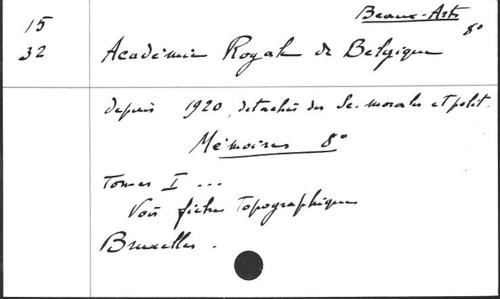 Beaux-Arts
8°
15
32
Académie Royale de Belgique
depuis 1920, détachés des Sc. morales et polit.
Mémoires 8°
Tomes I ...
Voir fiches topographiques
Bruxelles.